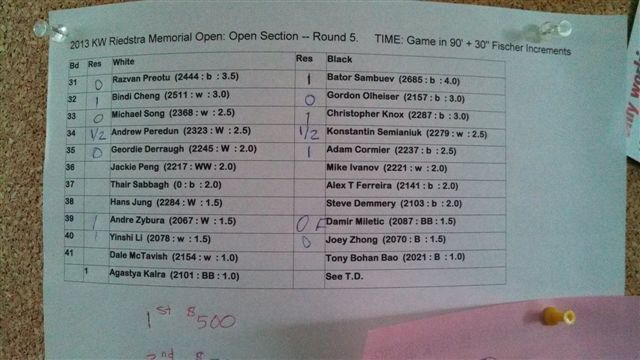 2013 KW Riedstra Memorial Open: Open Section -- Round 5. TIME: Game in 90' + 30" Fischer Increments
Bd Res White Res Black
31 0 Razvan Preotu (2444 : b : 3.5) 1 Bator Sambuev (2685 : b : 4.0)
32 1 Bindi Cheng (2511 : w : 3.0) 0 Gordon Olheiser (2157 : b : 3.0)
33 0 Michael Song (2368 : w : 2.5) 1 Christopher Knox (2287 : b : 3.0)
34 1/2 Andrew Peredun (2323 : W : 2.5) 1/2 Konstantin Semianiuk (2279 : w : 2.5)
35 0 Geordie Derraugh (2245 : W : 2.0) 1 Adam Cormier (2237 : b : 2.5)
36 Jackie Peng (2217 : WW : 2.0) Mike Ivanov (2221 : w : 2.0)
37 Thair Sabbagh (0 : b : 2.0) Alex T Ferreira (2141 : b : 2.0)
38 Hans Jung (2284 : W : 1.5) Steve Demmery (2103 : b : 2.0)
39 1 Andre Zybura (2067 : W : 1.5) 0 F Damir Miletic (2087 : BB : 1.5)
40 1 Yinshi Li (2078 : w : 1.5) 0 Joey Zhong (2070 : B : 1.5)
41 Dale McTavish (2154 : w : 1.0) Tony Bohan Bao (2021 : B : 1.0)
1 Agastya Kalra (2101 : BB : 1.0) See T.D.
1st $500
2nd $